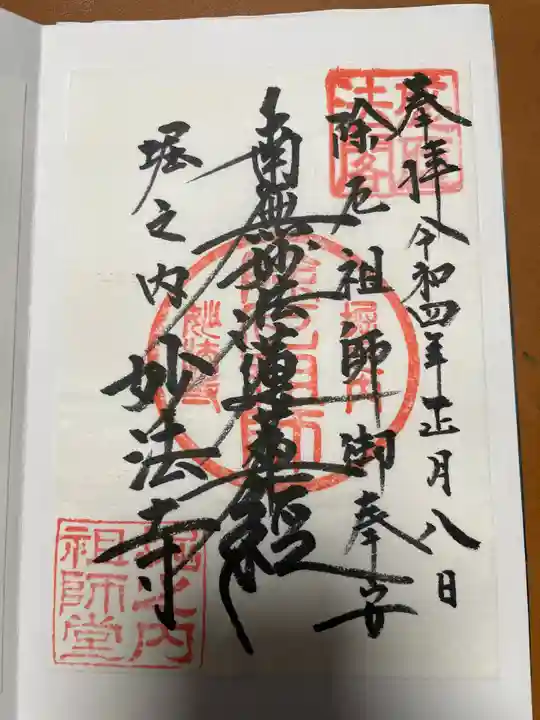 奉拝 令和四年正月八日
除厄祖師御奉安
南無妙法蓮華経
堀之内 妙法寺
堀之内
妙法寺
堀之内
祖師堂